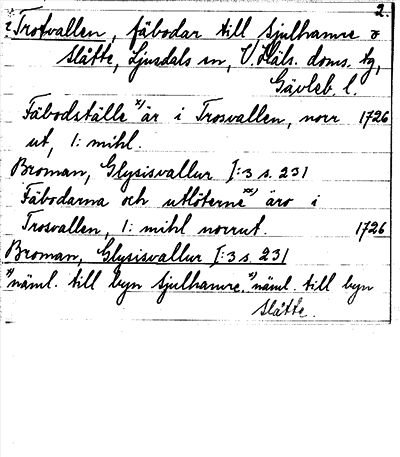 2.
Trotvallen, fäbodar till Sjulhamre o
Slåtte, Ljusdals sn, V. Häls. doms. tg,
Gävleb. l.
Fäbodställe x) är i Trosvallen, norr 1726
ut, 1: mihl.
Broman, Glysisvallur I:3 s. 231
Fäbodarna och utlöterne xx) äro i
Trosvallen, 1: mihl norrut. 1726
Broman, Glysisvallur I:3 s. 231
x) näml. till byn Sjulhamre. näml. till byn
Slåtte.